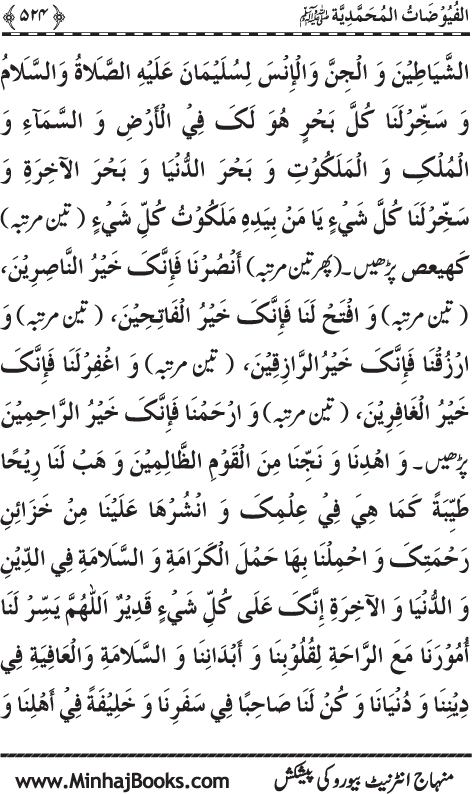 الفُیُوْضَاتُ المُحَمَّدِیَّة ﷺ ﴿۵۲۴﴾
الشَّيَاطِيْنَ وَ الْجِنَّ وَالْإِنْسَ لِسُلَيْمَانَ عَلَيْهِ الصَّلَاةُ وَالسَّلَامُ
وَ سَخِّرْلَنَا كُلَّ بَحْرٍ هُوَ لَکَ فِيْ الْأَرْضِ وَ السَّمَآءِ وَ
الْمُلْکِ وَ الْمَلَكُوْتِ وَ بَحْرَ الدُّنْيَا وَ بَحْرَ الآخِرَةِ وَ
سَخِّرْلَنَا كُلَّ شَيْءٍ يَا مَنْ بِيَدِهِ مَلَكُوْتُ كُلِّ شَيْءٍ (تین مرتبہ)
كهيعص پڑھیں۔ (پھر تین مرتبہ) أُنْصُرْنَا فَإِنَّکَ خَيْرُ النَّاصِرِيْنَ،
(تین مرتبہ) وَ افْتَحْ لَنَا فَإِنَّکَ خَيْرُ الْفَاتِحِيْنَ، (تین مرتبہ) وَ
ارْزُقْنَا فَإِنَّکَ خَيْرُالرَّازِقِيْنَ، (تین مرتبہ) وَ اغْفِرْلَنَا فَإِنَّکَ
خَيْرُ الْغَافِرِيْنَ، (تین مرتبہ) وَ ارْحَمْنَا فَإِنَّکَ خَيْرُ الرَّاحِمِيْنَ
پڑھیں۔ وَ اهْدِنَا وَ نَجِّنَا مِنَ الْقَوْمِ الظَّالِمِيْنَ وَ هَبْ لَنَا رِيْحًا
طَيِّبَةً كَمَا هِيَ فِيْ عِلْمِکَ وَ انْشُرْهَا عَلَيْنَا مِنْ خَزَائِنِ
رَحْمَتِکَ وَ احْمِلْنَا بِهَا حَمْلَ الْكَرَامَةِ وَ السَّلَامَةِ فِي الدِّيْنِ
وَ الدُّنْيَا وَ الآخِرَةِ إِنَّکَ عَلَى كُلِّ شَيْءٍ قَدِيْرٌ اَللّٰهُمَّ يَسِّرْ لَنَا
أُمُوْرَنَا مَعَ الرَّاحَةِ لِقُلُوْبِنَا وَ أَبْدَانِنَا وَ السَّلَامَةِ وَالْعَافِيَةِ فِي
دِيْنِنَا وَ دُنْيَانَا وَ كُنْ لَنَا صَاحِبًا فِي سَفَرِنَا وَ خَلِيْفَةً فِيْ أَهْلِنَا وَ
منہاج انٹرنیٹ بیورو کی پیشکش www.MinhajBooks.com